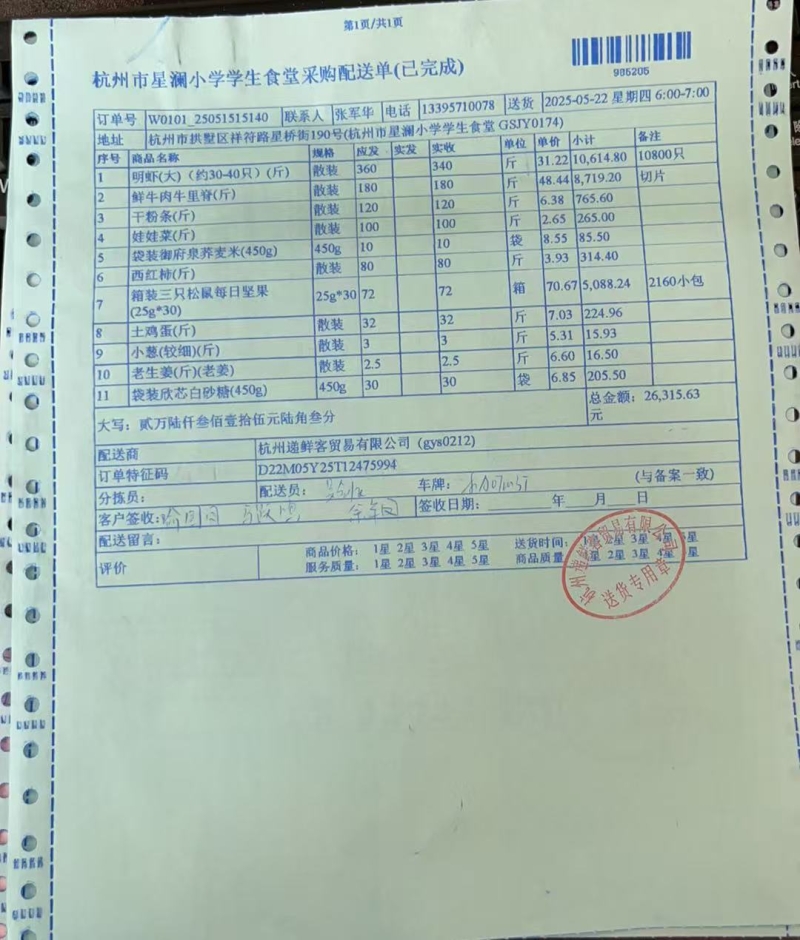 第1页/共1页
杭州市星澜小学学生食堂采购配送单(已完成)
986205
订单号 W0101_25051515140 联系人 张军华 电话 13395710078 送货 2025-05-22 星期四 6:00-7:00
地址 杭州市拱墅区祥符路星桥街190号(杭州市星澜小学学生食堂 GSJY0174)
序号 商品名称 规格 应发 实发 实收 单位 单价 小计 备注
1 明虾(大)（约30-40只）(斤) 散装 360 340 斤 31.22 10,614.80 10800只
2 鲜牛肉牛里脊(斤) 散装 180 180 斤 48.44 8,719.20 切片
3 干粉条(斤) 散装 120 120 斤 6.38 765.60
4 娃娃菜(斤) 散装 100 100 斤 2.65 265.00
5 袋装御府泉荞麦米(450g) 450g 10 10 袋 8.55 85.50
6 西红柿(斤) 散装 80 80 斤 3.93 314.40
7 箱装三只松鼠每日坚果(25g*30) 25g*30 72 72 箱 70.67 5,088.24 2160小包
8 土鸡蛋(斤) 散装 32 32 斤 7.03 224.96
9 小葱(较细)(斤) 散装 3 3 斤 5.31 15.93
10 老生姜(斤)(老姜) 散装 2.5 2.5 斤 6.60 16.50
11 袋装欣芯白砂糖(450g) 450g 30 30 袋 6.85 205.50
大写：贰万陆仟叁佰壹拾伍元陆角叁分 总金额：26,315.63元
配送商 杭州递鲜客贸易有限公司（gys0212)
订单特征码 D22M05Y25T12475994
分拣员： 配送员： 车牌： (与备案一致)
客户签收： 签收日期： 年 月 日
配送留言：
评价 商品价格： 1星 2星 3星 4星 5星 送货时间： 1星 2星 3星 4星 5星
服务质量： 1星 2星 3星 4星 5星 商品质量： 1星 2星 3星 4星 5星
杭州递鲜客贸易有限公司
送货专用章